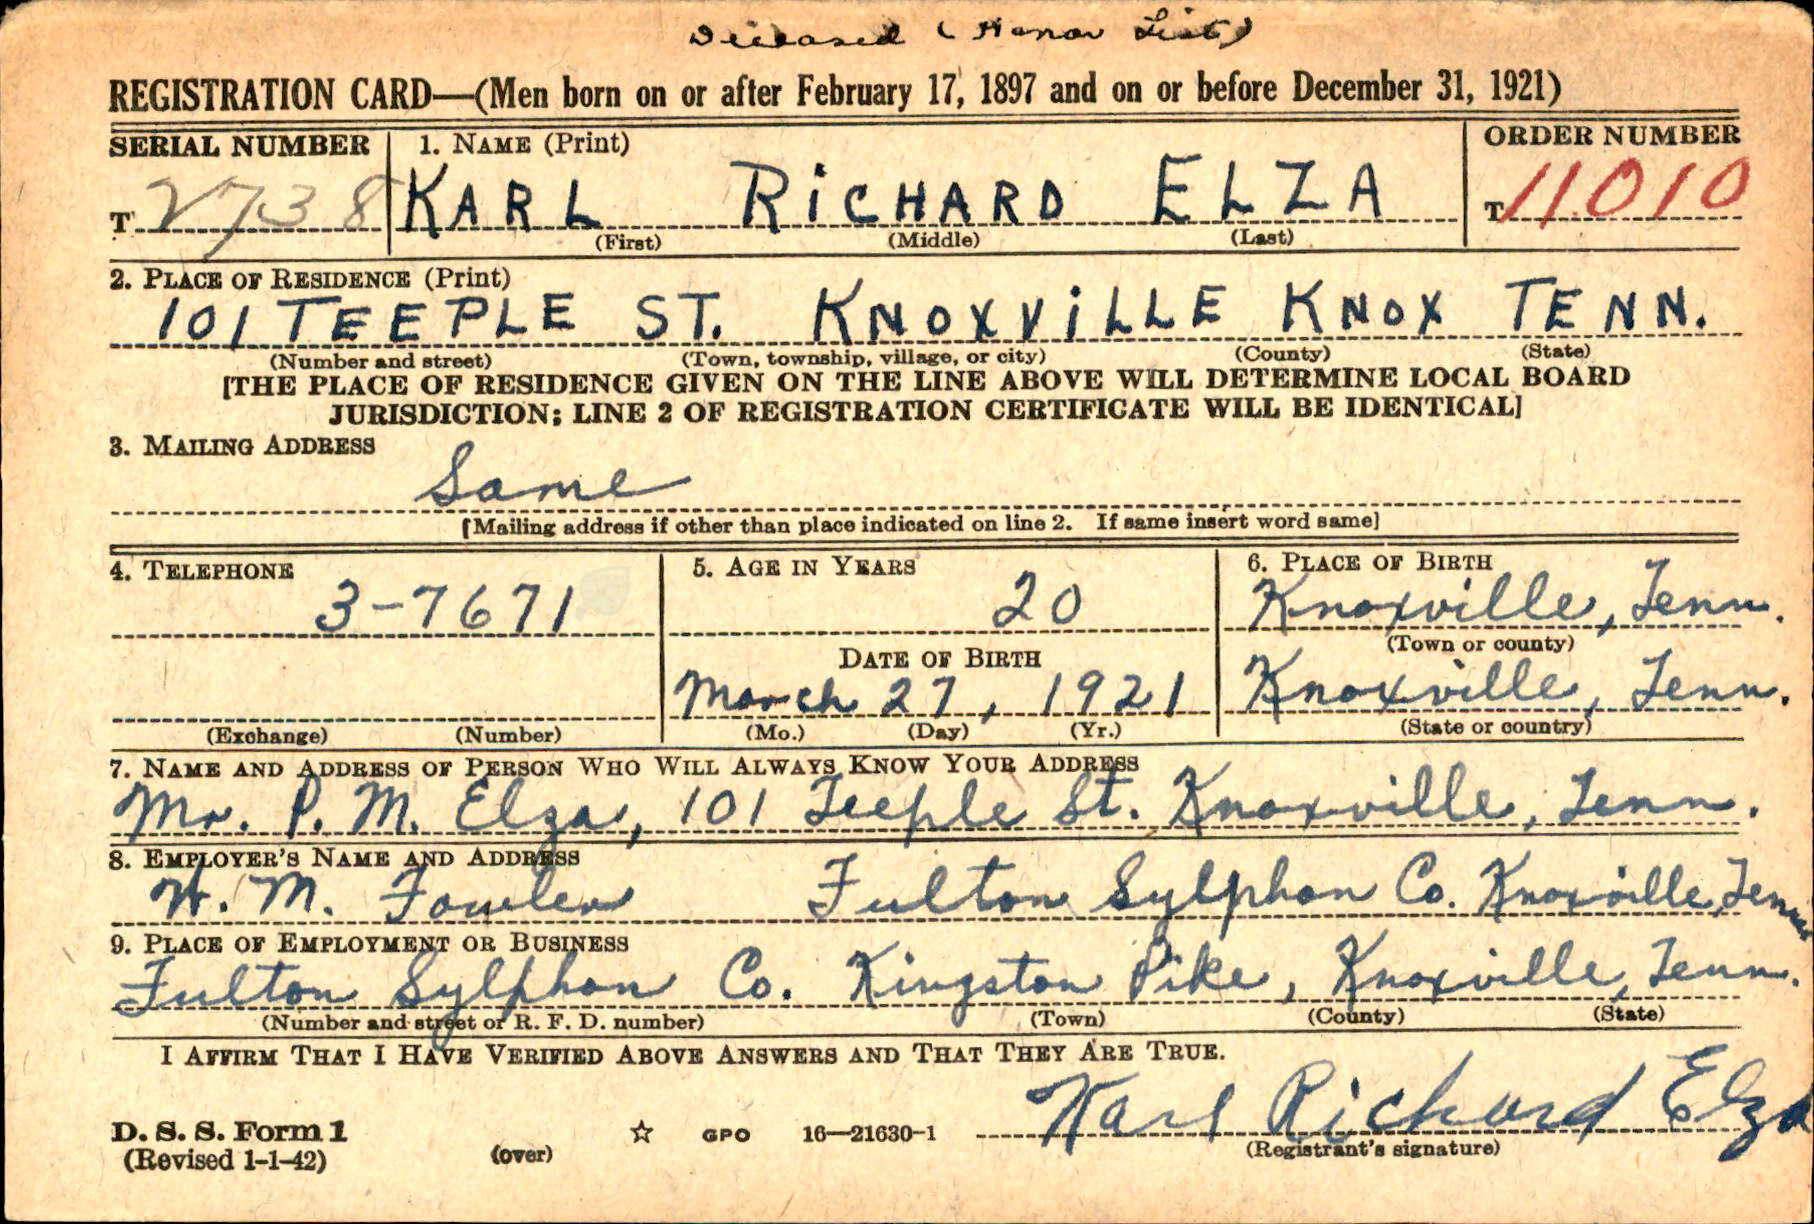 Deceased (Honor List)
REGISTRATION CARD—(Men born on or after February 17, 1897 and on or before December 31, 1921)
SERIAL NUMBER 1. NAME (Print) ORDER NUMBER
T 2738 KARL RICHARD ELZA T 11010
(First) (Middle) (Last)
2. PLACE OF RESIDENCE (Print)
101 TEEPLE ST. KNOXVILLE KNOX TENN.
(Number and street) (Town, township, village, or city) (County) (State)
[THE PLACE OF RESIDENCE GIVEN ON THE LINE ABOVE WILL DETERMINE LOCAL BOARD
JURISDICTION; LINE 2 OF REGISTRATION CERTIFICATE WILL BE IDENTICAL]
3. MAILING ADDRESS
Same
[Mailing address if other than place indicated on line 2. If same insert word same]
4. TELEPHONE 5. AGE IN YEARS 6. PLACE OF BIRTH
3-7671 20 Knoxville, Tenn.
(Town or county)
DATE OF BIRTH
March 27, 1921 Knoxville, Tenn.
(Exchange) (Number) (Mo.) (Day) (Yr.) (State or country)
7. NAME AND ADDRESS OF PERSON WHO WILL ALWAYS KNOW YOUR ADDRESS
Mr. P. M. Elza, 101 Teeple St. Knoxville, Tenn.
8. EMPLOYER'S NAME AND ADDRESS
W. M. Fowler Fulton Sylphon Co. Knoxville, Tenn.
9. PLACE OF EMPLOYMENT OR BUSINESS
Fulton Sylphon Co. Kingston Pike, Knoxville, Tenn.
(Number and street or R. F. D. number) (Town) (County) (State)
I AFFIRM THAT I HAVE VERIFIED ABOVE ANSWERS AND THAT THEY ARE TRUE.
Karl Richard Elza
D. S. S. Form 1
(Revised 1-1-42) (over) ☆ GPO 16—21630-1 (Registrant's signature)